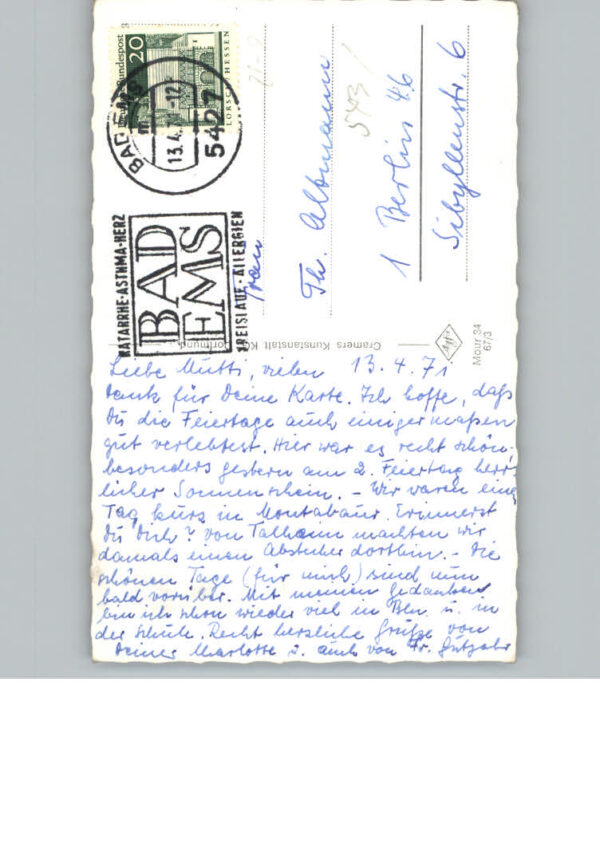 Deutsche Bundespost
20
LORSCH / HESSEN
BAD EMS
13.4.71-12
5427
KATARRHE-ASTHMA-HERZ
BAD
EMS
KREISLAUF-ALLERGIEN
Frau
Th. Altmann
1 Berlin 46
Sibyllenstr. 6
543/
Cramers Kunstanstalt KG, Dortmund
Mour 34
67/3
Liebe Mutti, vielen 13.4.71.
Dank für Deine Karte. Ich hoffe, daß
Du die Feiertage auch einigermaßen
gut verlebtest. Hier war es recht schön,
besonders gestern am 2. Feiertag herr-
licher Sonnenschein. – Wir waren einen
Tag kurz in Montabaur. Erinnerst
Du Dich? Von Talheim machten wir
damals einen Abstecher dorthin. – Die
schönen Tage (für mich) sind nun
bald vorüber. Mit meinen Gedanken
bin ich schon wieder viel in Bln. u. in
der Schule. Recht herzliche Grüße von
Deiner Marlotte u. auch von Fr. Gutjahr